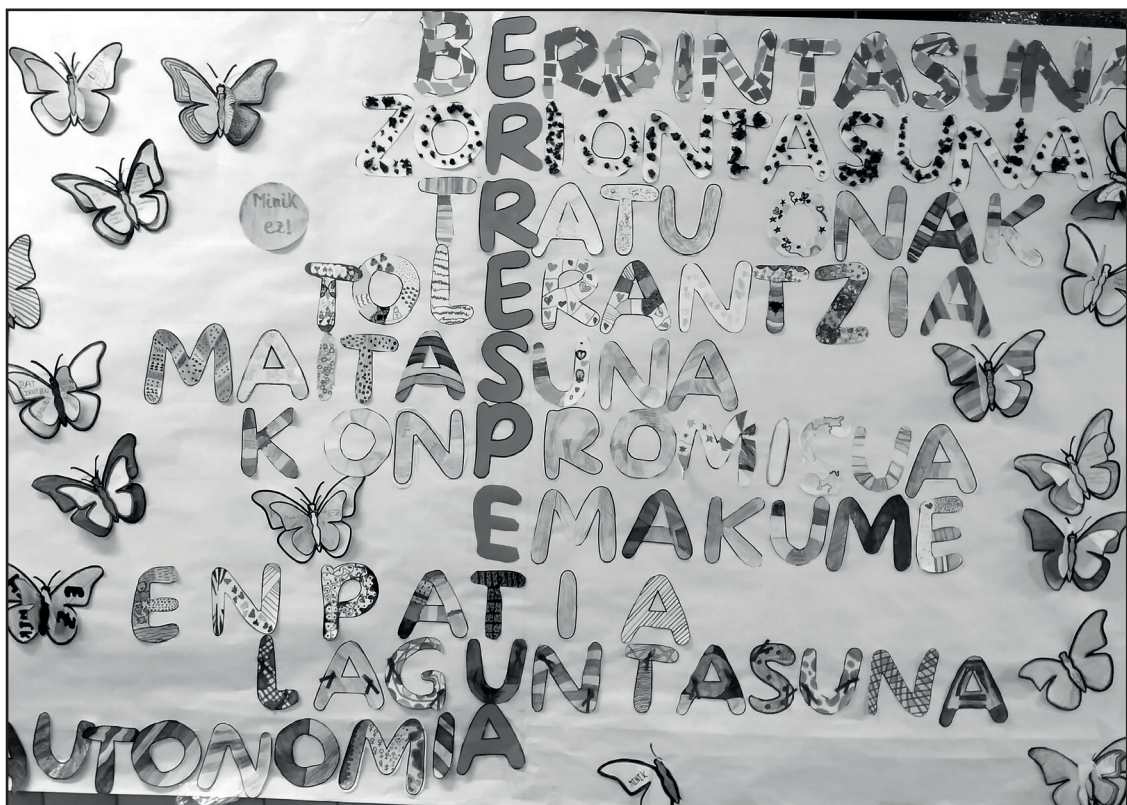 BERDINTASUNA
ZORIONTASUNA
TRATU ONAK
Minik ez!
TOLERANTZIA
MAITASUNA
KONPROMISUA
EMAKUME
ENPATIA
LAGUNTASUNA
AUTONOMIA
MINIK